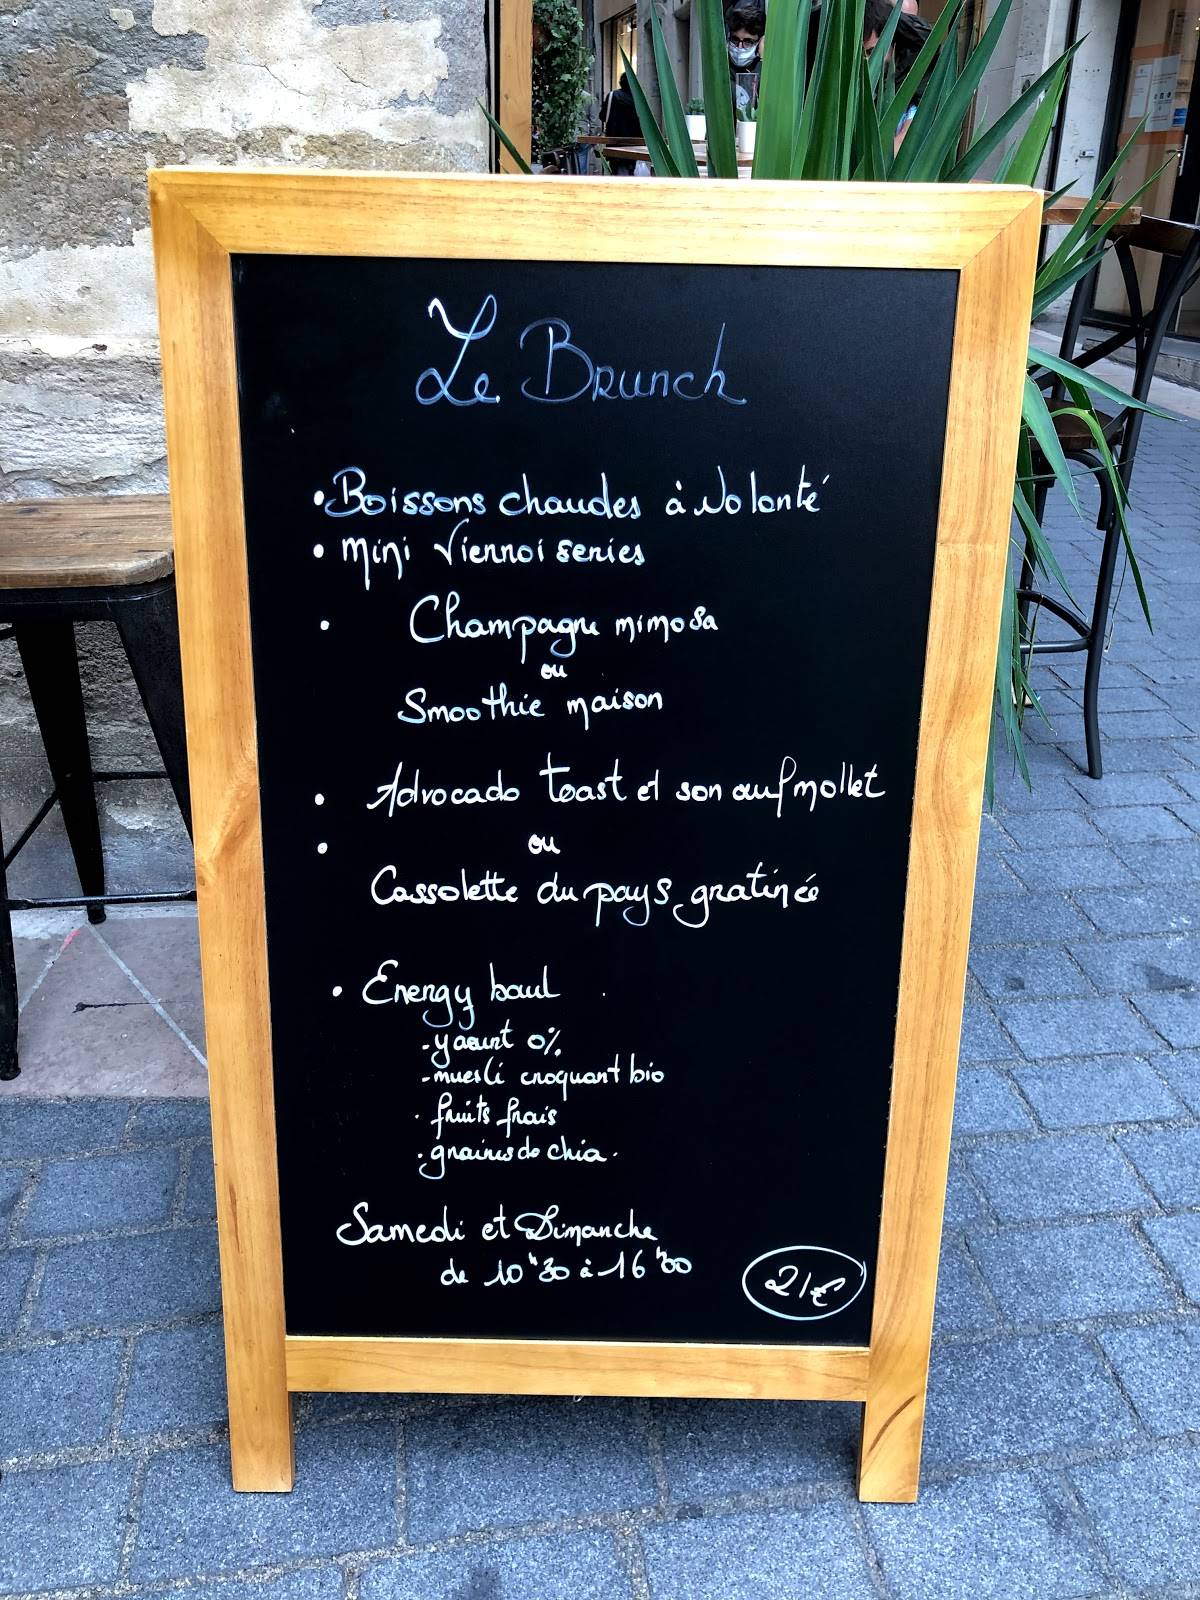 Le Brunch
• Boissons chaudes à volonté
• mini Viennoiseries
• Champagne mimosa
ou
Smoothie maison
• Advocado toast et son œuf mollet
• ou
Cassolette du pays gratinée
• Energy baul
- yaourt 0%
- muesli croquant bio
- fruits frais
- graines de chia.
Samedi et Dimanche
de 10h30 à 16h00
21€